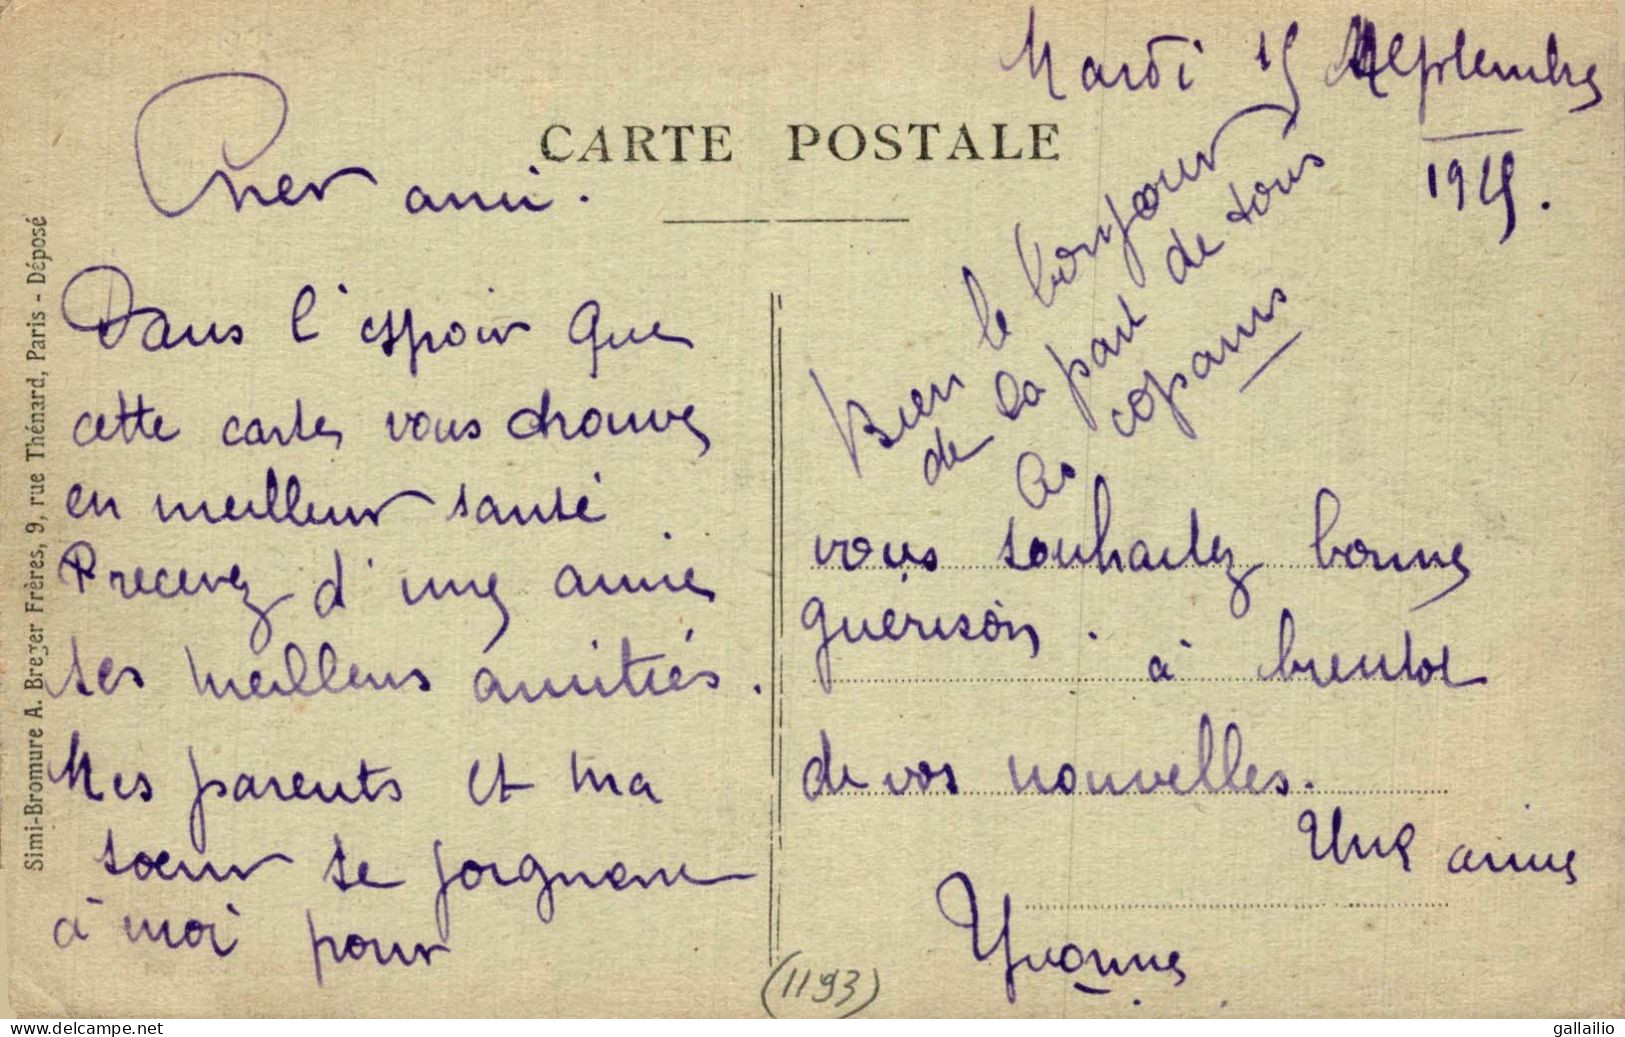 Mardi 15 Septembre
1925.
CARTE POSTALE
Cher ami.
Dans l'espoir que
cette carte vous trouve
en meilleur santé
Precevez d'une amie
ses meilleurs amitiés.
Mes parents et ma
soeur se joignene
à moi pour
vous souhaitez bonne
guérison. à bientot
de vos nouvelles.
Une amie
Yvonne
Bien le bonjour
de la part de tous
copains
Simi-Bromure A. Breger Frères, 9, rue Thénard, Paris - Déposé
(1193)
www.delcampe.com
gallailio